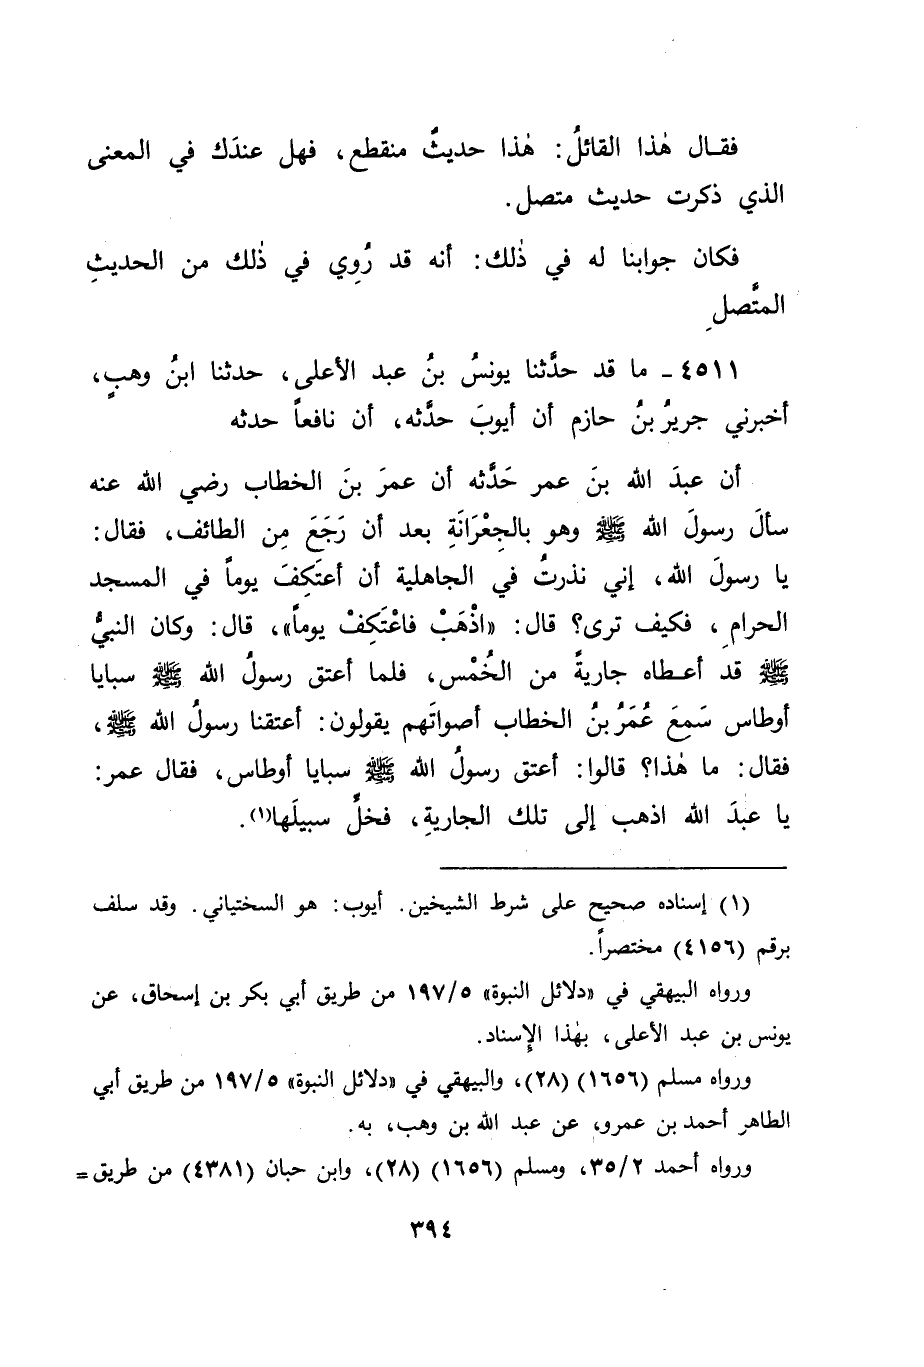 فقـال هٰذا القائلُ: هٰذا حديثٌ منقطع، فهل عندَك في المعنى
الذي ذكرت حديث متصل.
فكان جوابنا له في ذٰلك: أنه قد رُوِي في ذٰلك من الحديثِ
المتَّصلِ
٤٥١١ ـ ما قد حدَّثنا يونسُ بنُ عبد الأعلى، حدثنا ابنُ وهبٍ،
أخبرني جريرُ بنُ حازم أن أيوبَ حدَّثه، أن نافعاً حدثه
أن عبدَ الله بنَ عمر حَدَّثه أن عمرَ بنَ الخطاب رضي الله عنه
سألَ رسولَ الله ﷺ وهو بالجِعْرَانَةِ بعد أن رَجَعَ مِن الطائف، فقال:
يا رسولَ الله، إني نذرتُ في الجاهلية أن أعتَكِفَ يوماً في المسجد
الحرامِ، فكيف ترى؟ قال: «اذْهَبْ فاعْتَكِفْ يوماً»، قال: وكان النبيُّ
ﷺ قد أعـطاه جاريةً من الخُمْس، فلما أعتق رسولُ الله ﷺ سبايا
أوطاس سَمِعَ عُمَرُ بنُ الخطاب أصواتَهم يقولون: أعتقنا رسولُ الله ﷺ،
فقال: ما هٰذا؟ قالوا: أعتق رسولُ الله ﷺ سبايا أوطاس، فقال عمر:
يا عبدَ الله اذهب إلى تلك الجاريةِ، فخلِّ سبيلَها(١).
(١) إسناده صحيح على شرط الشيخين. أيوب: هو السختياني. وقد سلف
برقم (٤١٥٦) مختصراً.
ورواه البيهقي في «دلائل النبوة» ١٩٧/٥ من طريق أبي بكر بن إسحاق، عن
يونس بن عبد الأعلى، بهٰذا الإِسناد.
ورواه مسلم (١٦٥٦) (٢٨)، والبيهقي في «دلائل النبوة» ١٩٧/٥ من طريق أبي
الطاهر أحمد بن عمرو، عن عبد الله بن وهب، به.
ورواه أحمد ٣٥/٢، ومسلم (١٦٥٦) (٢٨)، وابن حبان (٤٣٨١) من طريق =
٣٩٤